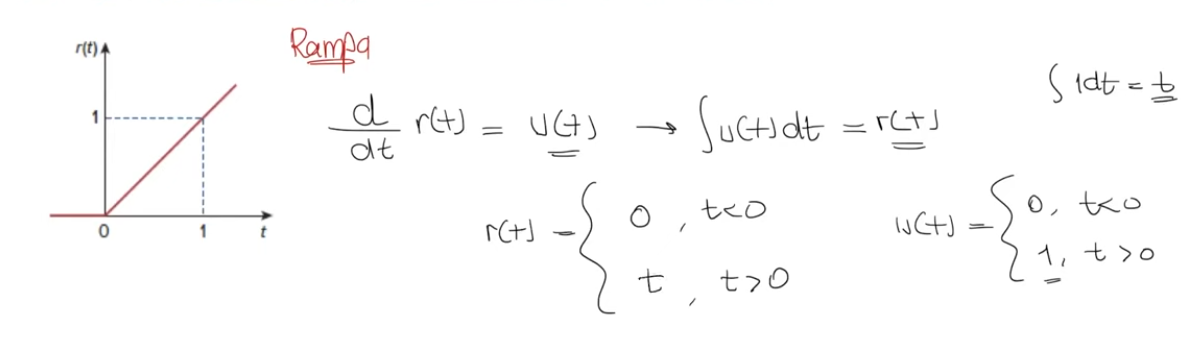 r(t)
1
0
1
t
Rampa
d/dt r(t) = u(t) → ∫u(t)dt = r(t)
∫ 1dt = t
r(t) = { 0 , t<0
t , t>0
u(t) = { 0, t<0
1, t>0